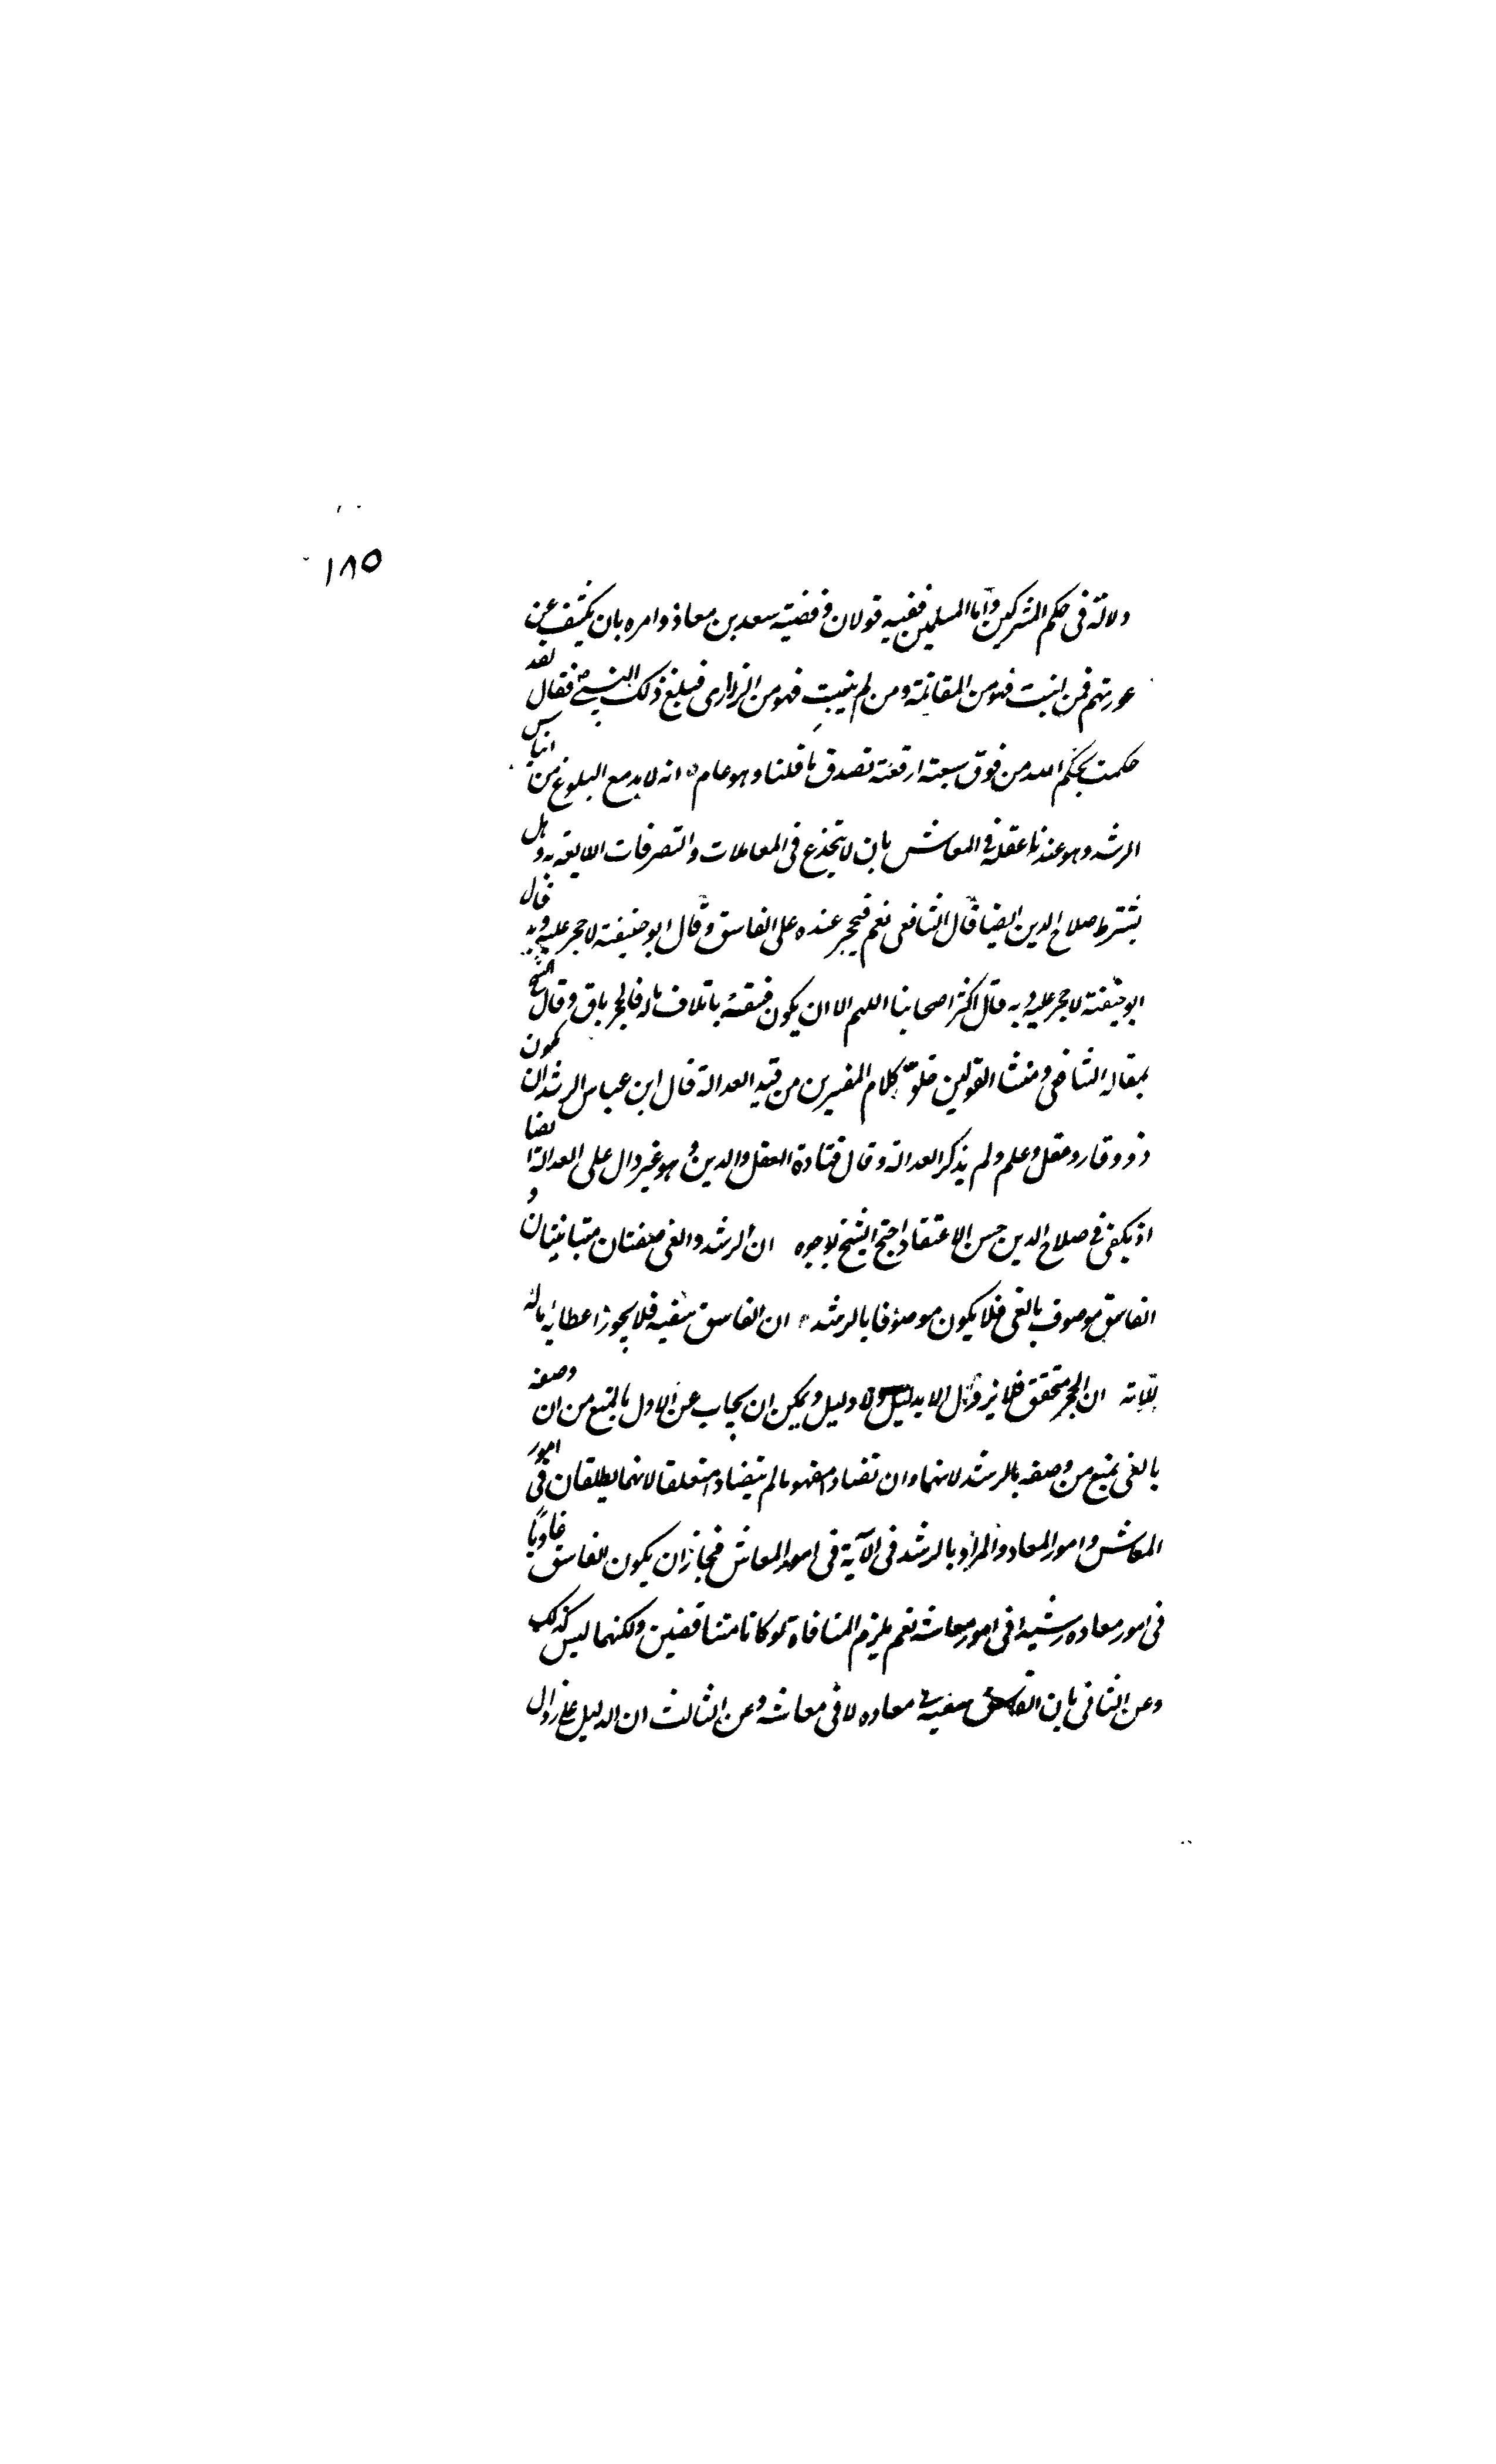 ١٨٥
دلالة فى حكم المشركين وأما المسلمين ففيه قولان وقضية سعد بن معاذ وامره بان يكشف عن
عورتهم فمن انبت فهو من المقاتلة ومن لم ينبت فهو من الذرارى فبلغ ذلك النبي ص فقال لقد
حكمت بحكم الله من فوق سبعة ارقعة تصدق ما قلنا وهو عام انه لا بد مع البلوغ من ايناس
الرشد وهو عندنا عقله فى المعاش بان لا يتخدع فى المعاملات والتصرفات اللايقه به وهل
يشترط صلاح الدين ايضا قال الشافعى نعم فيحجر عنده على الفاسق وقال ابو حنيفة لا حجر عليه وبه قال
ابو حنيفة لا حجر عليه وبه قال اكثر اصحابنا اللهم الا ان يكون فسقه باتلاف ماله فالحجر باق وقال الشيخ
بمقاله الشافعى ومنشا القولين خلو كلام المفسرين من قيد العدالة قال ابن عباس الرشد ان يكون
ذو وقار وعقل وعلم ولم يذكر العدالة وقال قتادة العقل والدين وهو غير دال على العدالة ايضا
اذ يكفى فى صلاح الدين حسن الاعتقاد احتج الشيخ بوجوه ان الرشد والغى صفتان متباينتان و
الفاسق موصوف بالغى فلا يكون موصوفا بالرشد ان الفاسق سفيه فلا يجوز اعطائه ماله
للآية ان الحجر متحقق فلا يزول الا بدليل ولا دليل ويمكن ان يجاب عن الاول بالمنع من ان وصفه
بالغى يمنع من وصفه بالرشد لانهما وان تضادا مفهوما لم يتضادا متعلقا لانهما يطلقان فى امور
المعاش وامور المعاد والمراد بالرشد فى الآية فى امور المعاش فجاز ان يكون الفاسق غاويا
فى امور معاده رشيدا فى امور معاشه نعم يلزم المنافاة لو كانا متناقضين ولكنهما ليس كذلك
وعن الثانى بان الفاسق سفيه فى معاده لا فى معاشه وعن الثالث ان الدليل على زوال